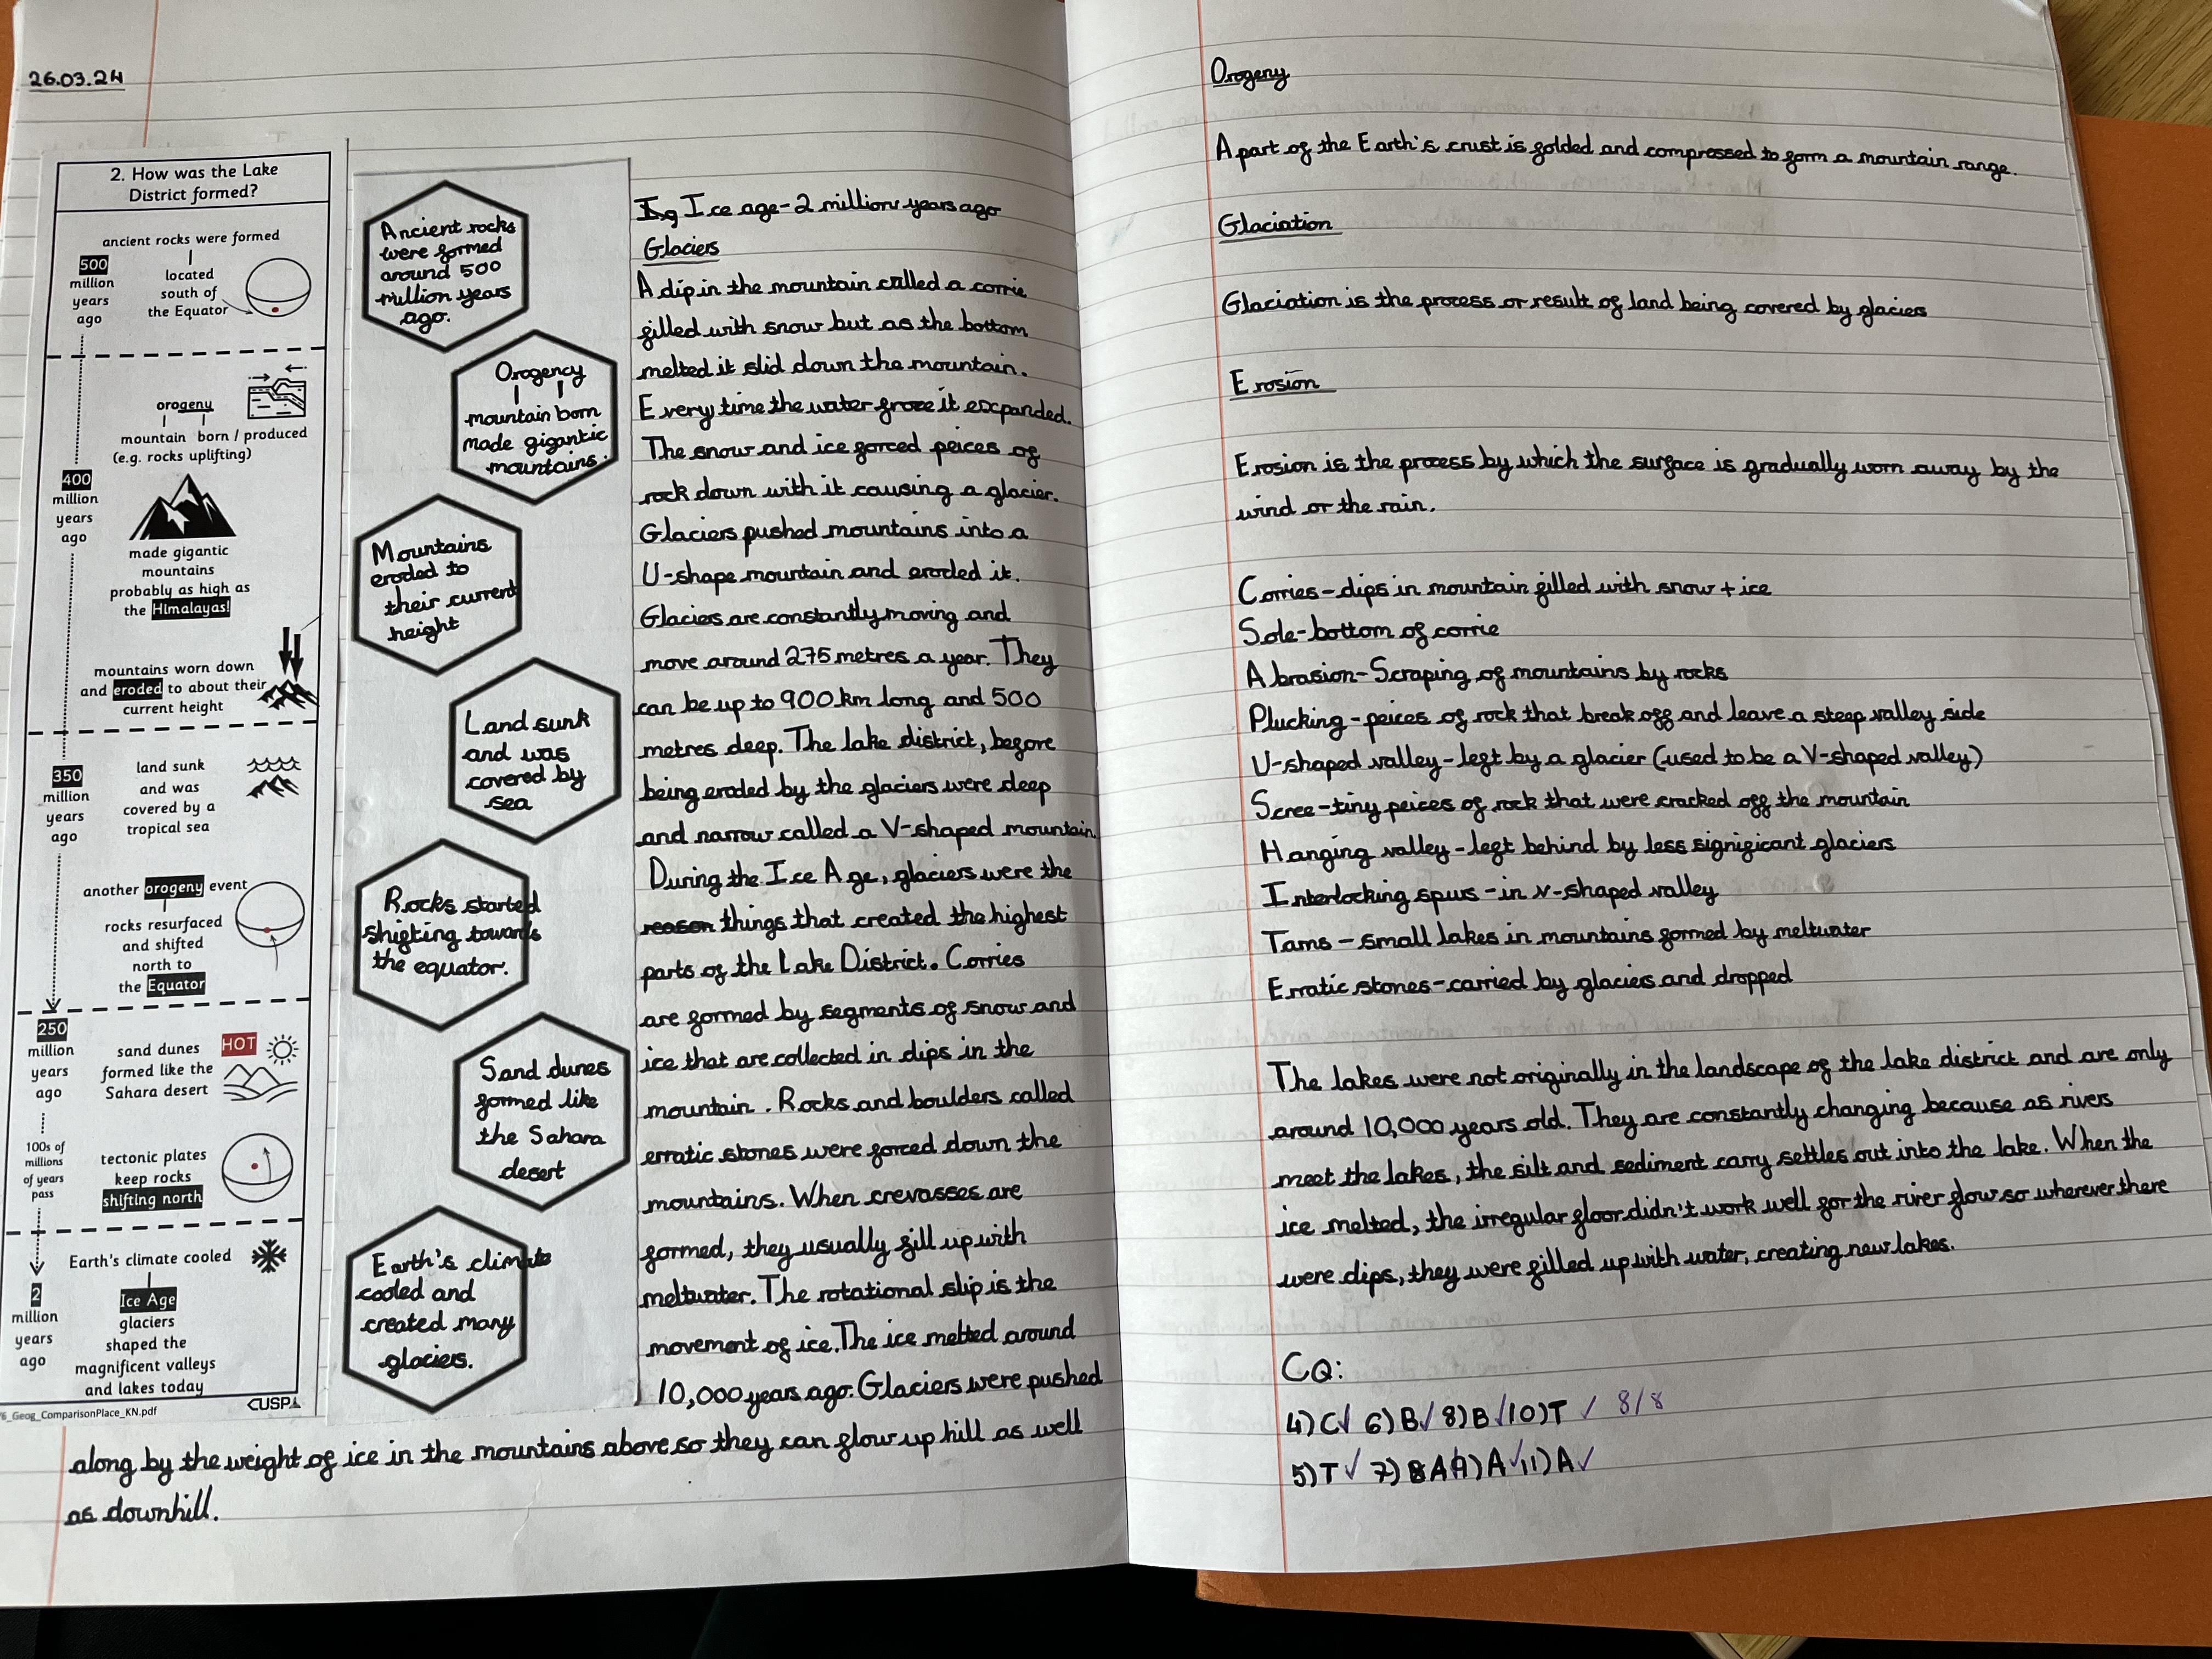 26.03.24
2. How was the Lake
District formed?
ancient rocks were formed
500
million
years
ago
located
south of
the Equator
orogeny
mountain born / produced
(e.g. rocks uplifting)
400
million
years
ago
made gigantic
mountains
probably as high as
the Himalayas!
mountains worn down
and eroded to about their
current height
350
million
years
ago
land sunk
and was
covered by a
tropical sea
another orogeny event
rocks resurfaced
and shifted
north to
the Equator
250
million
years
ago
sand dunes
formed like the
Sahara desert
HOT
100s of
millions
of years
pass
tectonic plates
keep rocks
shifting north
Earth's climate cooled
2
million
years
ago
Ice Age
glaciers
shaped the
magnificent valleys
and lakes today
6_Geog_ComparisonPlace_KN.pdf
CUSP
Ancient rocks
were formed
around 500
million years
ago.
Orogency
mountain born
made gigantic
mountains.
Mountains
eroded to
their current
height
Land sunk
and was
covered by
sea
Rocks started
shifting towards
the equator.
Sand dunes
formed like
the Sahara
desert
Earth's climate
cooled and
created many
glaciers.
Ice age - 2 million years ago
Glaciers
A dip in the mountain called a corrie
filled with snow but as the bottom
melted it slid down the mountain.
Every time the water froze it expanded.
The snow and ice forced peices of
rock down with it causing a glacier.
Glaciers pushed mountains into a
U-shape mountain and eroded it.
Glaciers are constantly moving and
move around 275 metres a year. They
can be up to 900 km long and 500
metres deep. The lake district, before
being eroded by the glaciers were deep
and narrow called a V-shaped mountain.
During the Ice Age, glaciers were the
reason things that created the highest
parts of the Lake District. Corries
are formed by segments of snow and
ice that are collected in dips in the
mountain. Rocks and boulders called
erratic stones were forced down the
mountains. When crevasses are
formed, they usually fill up with
meltwater. The rotational slip is the
movement of ice. The ice melted around
10,000 years ago. Glaciers were pushed
along by the weight of ice in the mountains above so they can flow up hill as well
as downhill.
Orogeny
A part of the Earth's crust is folded and compressed to form a mountain range.
Glaciation
Glaciation is the process or result of land being covered by glaciers
Erosion
Erosion is the process by which the surface is gradually worn away by the
wind or the rain.
Corries - dips in mountain filled with snow + ice
Sole - bottom of corrie
Abrasion - Scraping of mountains by rocks
Plucking - peices of rock that break off and leave a steep valley side
U-shaped valley - left by a glacier (used to be a V-shaped valley)
Scree - tiny peices of rock that were cracked off the mountain
Hanging valley - left behind by less significant glaciers
Interlocking spurs - in v-shaped valley
Tarns - small lakes in mountains formed by meltwater
Erratic stones - carried by glaciers and dropped
The lakes were not originally in the landscape of the lake district and are only
around 10,000 years old. They are constantly changing because as rivers
meet the lakes, the silt and sediment carry settles out into the lake. When the
ice melted, the irregular floor didn't work well for the river flow so wherever there
were dips, they were filled up with water, creating new lakes.
CQ:
4) C✓ 6) B✓ 8) B✓ 10) T ✓ 8/8
5) T✓ 7) A 9) A✓ 11) A✓